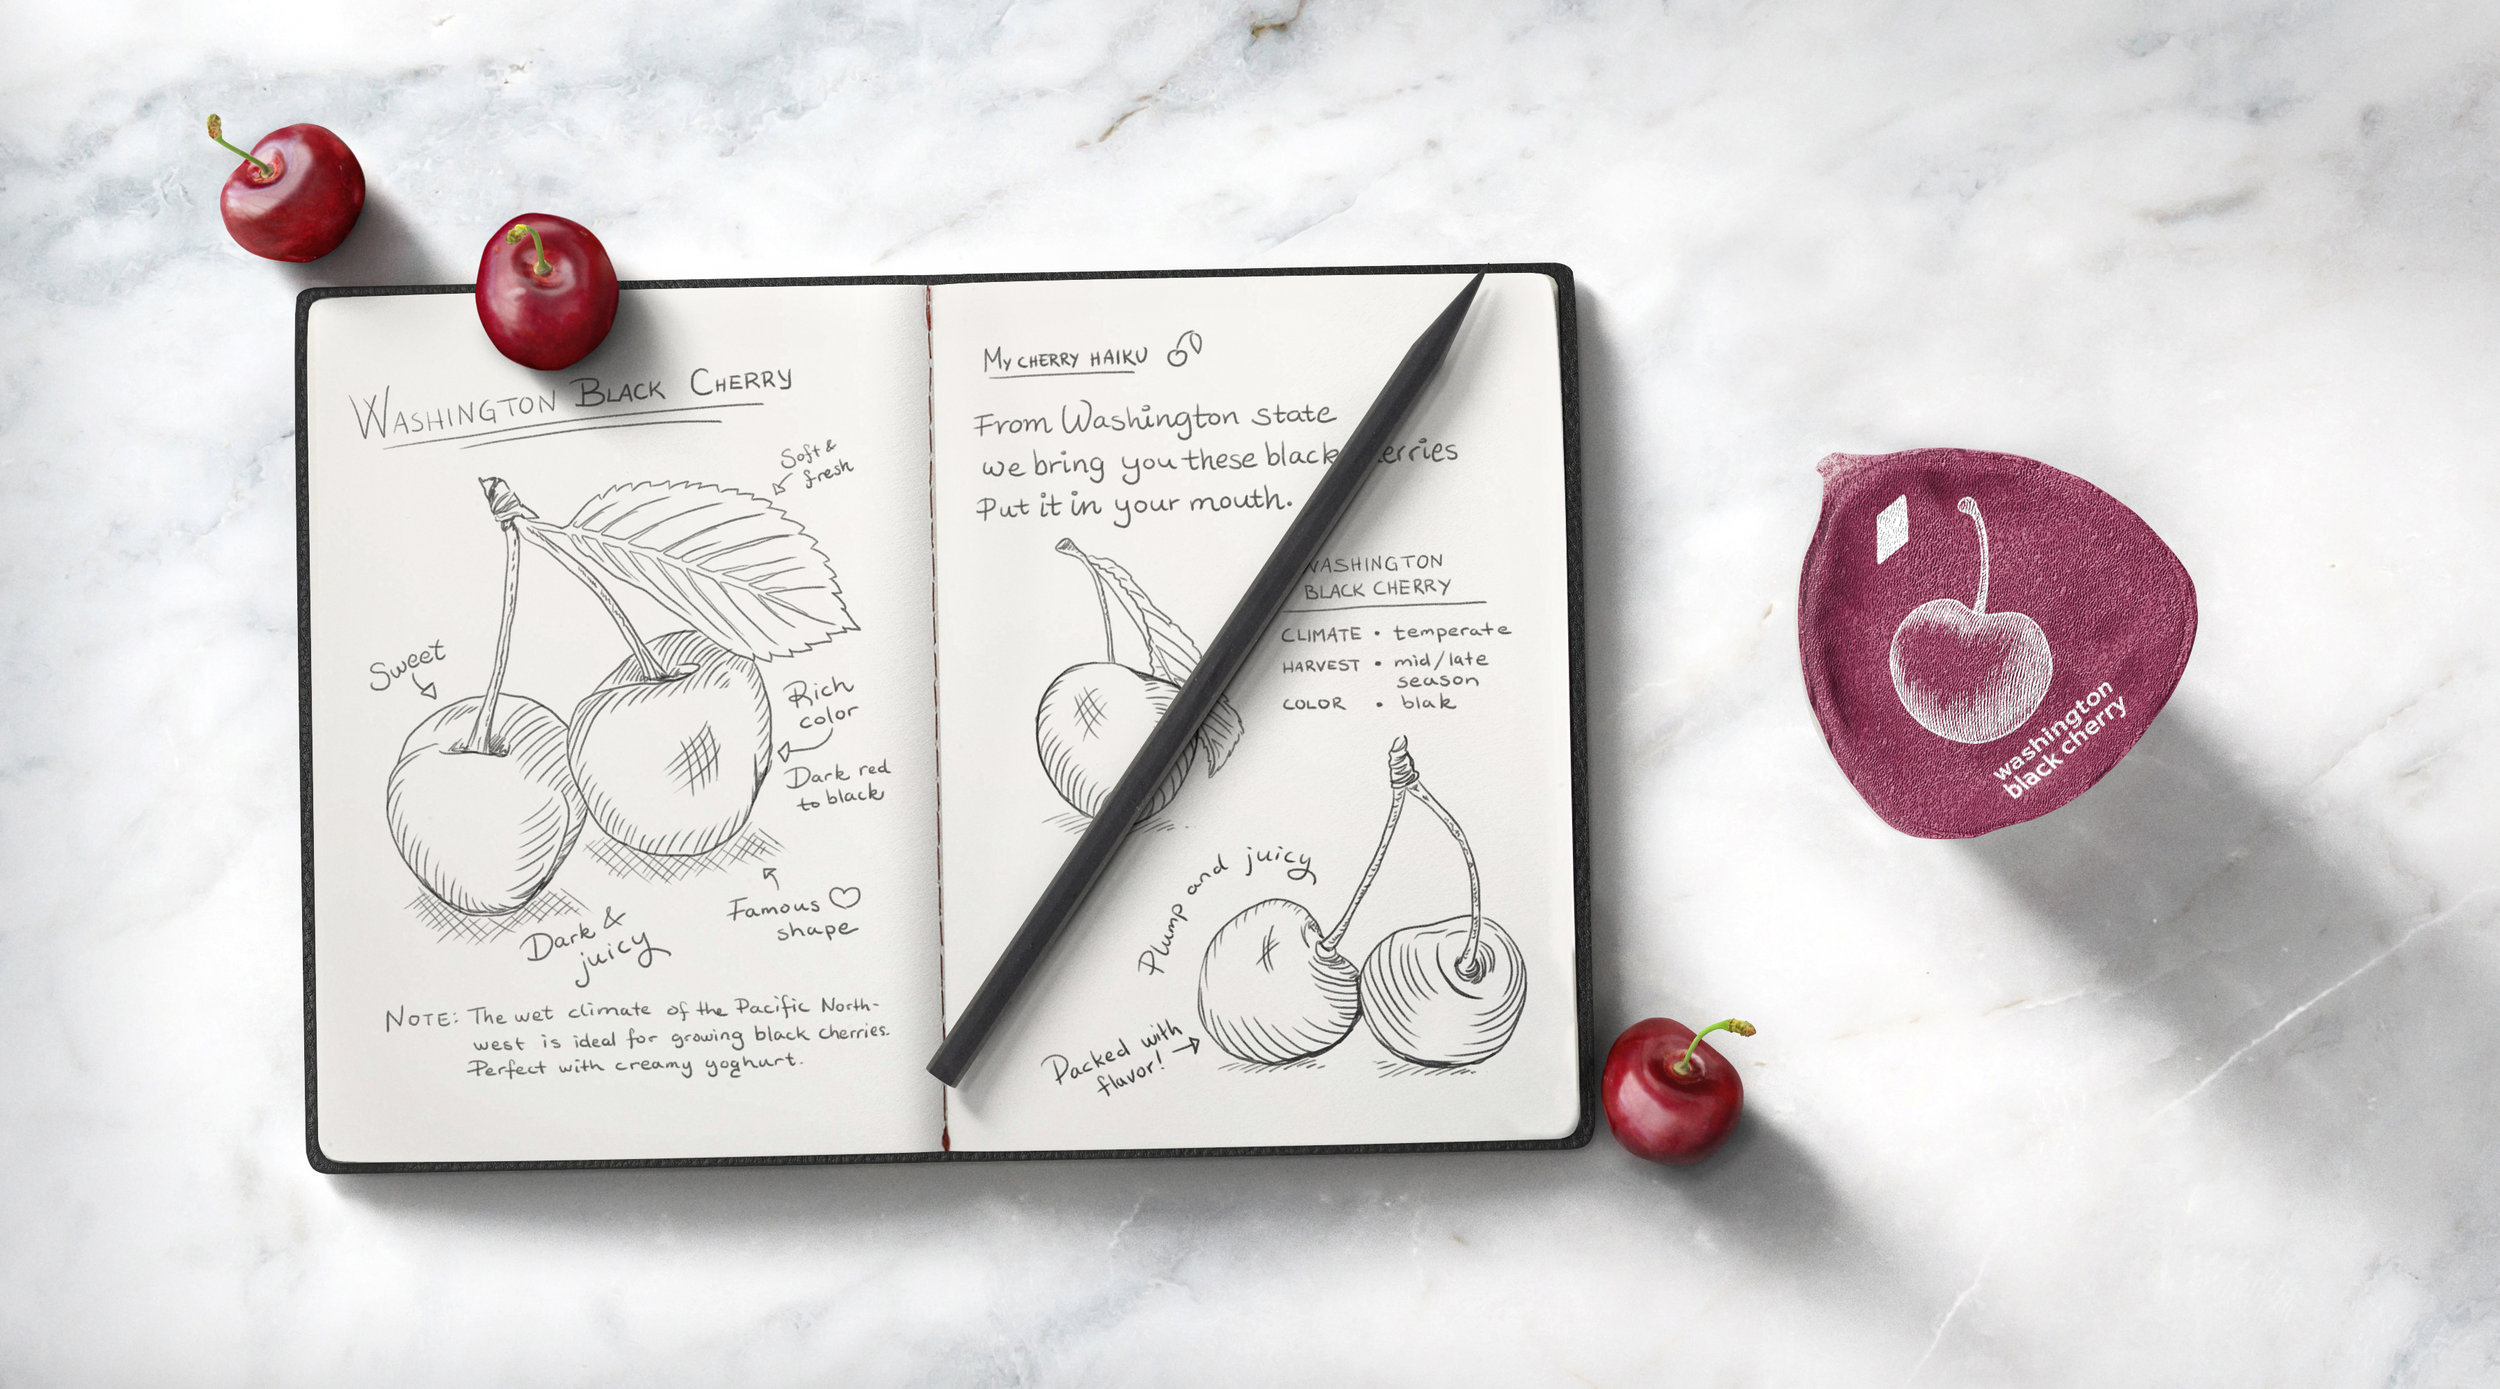 WASHINGTON BLACK CHERRY
Soft &
fresh
Sweet
Rich
color
Dark red
to black
Famous
shape
Dark &
juicy
NOTE: The wet climate of the Pacific North-
west is ideal for growing black cherries.
Perfect with creamy yoghurt.
My CHERRY HAIKU
From Washington state
we bring you these black erries
Put it in your mouth.
WASHINGTON
BLACK CHERRY
CLIMATE • temperate
HARVEST • mid/late
season
COLOR • blak
Plump and juicy
Packed with
flavor!
washington
black cherry